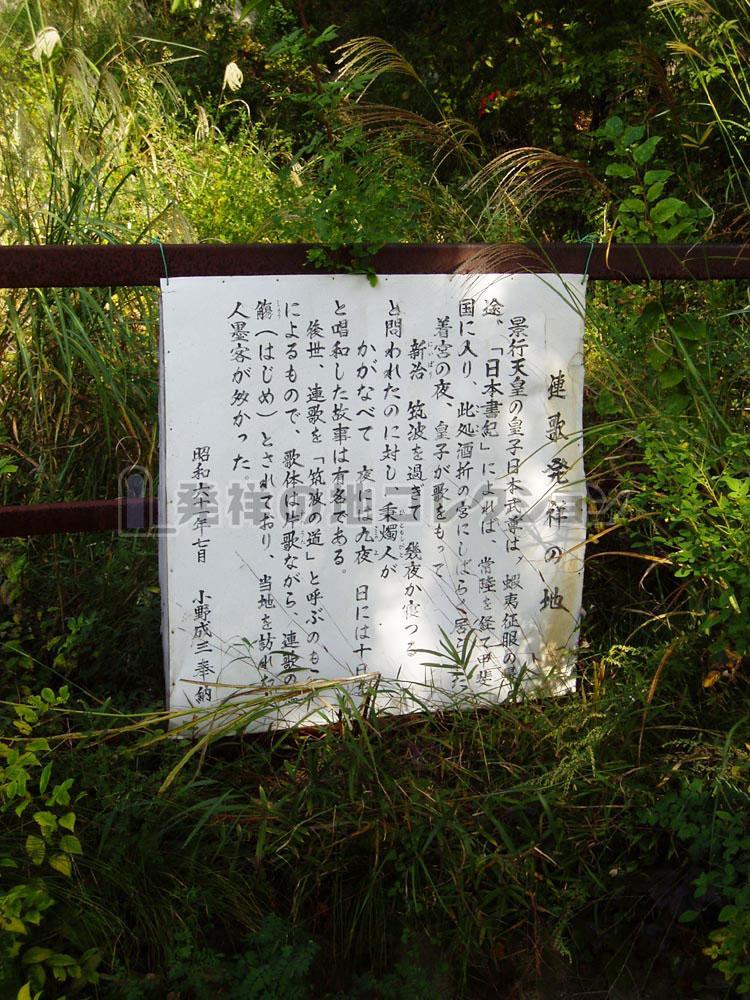 連歌発祥の地
景行天皇の皇子日本武尊は、蝦夷征服の
途、「日本書紀」によれば、常陸を経て甲斐
国に入り、此処酒折の宮にしばらく居
着宮の夜、皇子が歌をもって
新治 筑波を過ぎて 幾夜か寝つる
にいばり
と問われたのに対し 秉燭人が
ひともしびと
かがなべて 夜には九夜 日には十日
と唱和した故事は有名である。
後世、連歌を「筑波の道」と呼ぶのも
によるもので、歌体は片歌ながら、連歌の
觴(はじめ)とされており、当地を訪れた
人墨客が多かった
昭和六十年七月 小野成三奉納
発祥の地コレクション